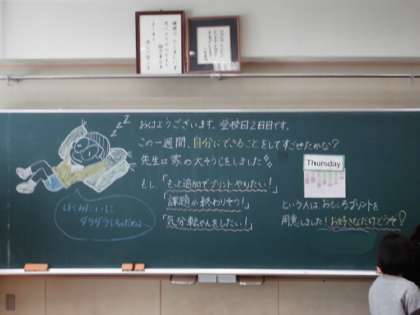 おはようございます。登校日2日目です。
この一週間、自分にできることをしてすごせたかな?
先生は家の大そうじをしました
Thursday
もし「もっと追加でプリントやりたい!」
「課題が終わりそう!」
「気分転かんをしたい!」
という人は、おもしろプリントを
用意しました!お好きなだけどうぞ!
zzz
ダラダラしちゃだめよ〜